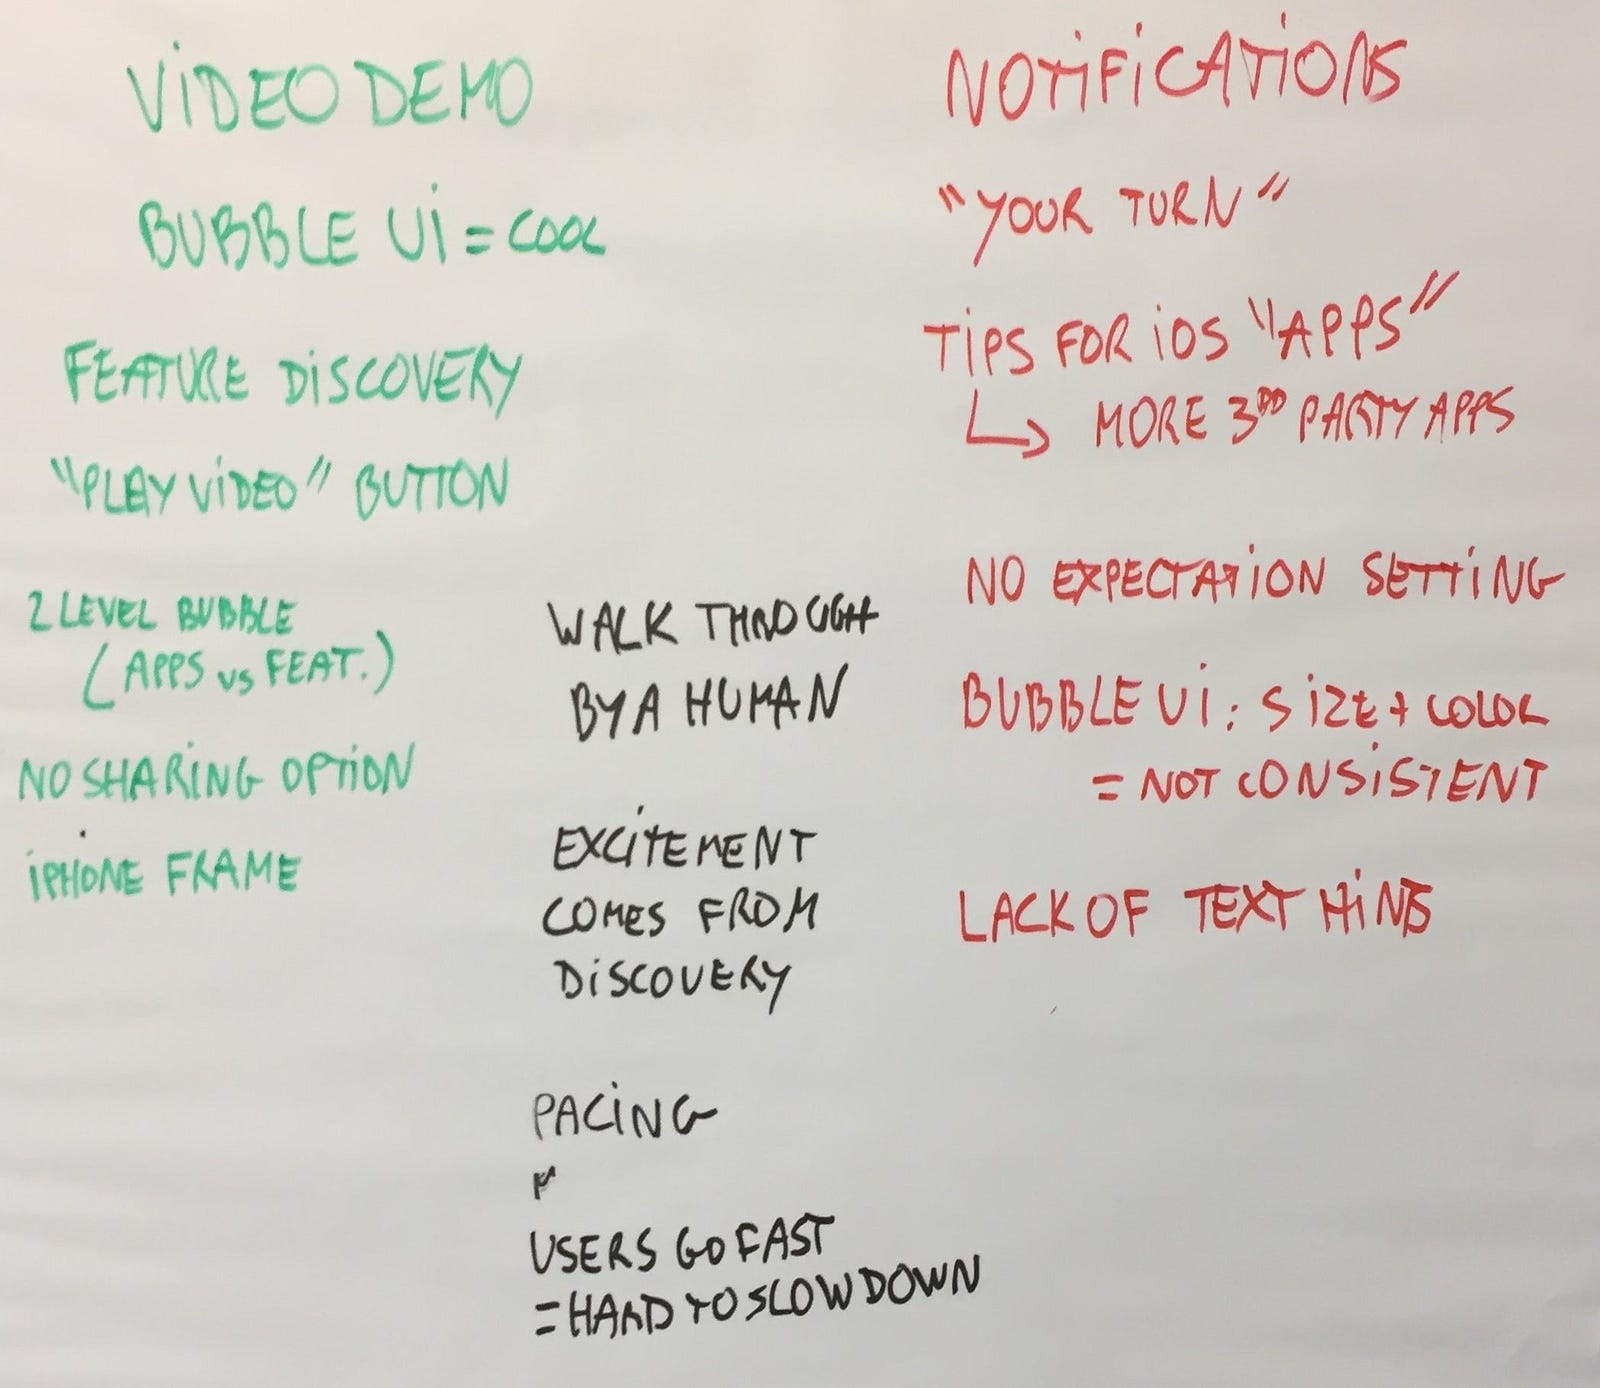 VIDEO DEMO
BUBBLE Ui = COOL
FEATURE DISCOVERY
"PLAY VIDEO" BUTTON
2 LEVEL BUBBLE
(APPS vs FEAT.)
NO SHARING OPTION
iPHONE FRAME
WALK THROUGH
BY A HUMAN
EXCITEMENT
COMES FROM
DISCOVERY
PACING
USERS GO FAST
= HARD TO SLOW DOWN
NOTIFICATIONS
"YOUR TURN"
TIPS FOR iOS "APPS"
↳ MORE 3RD PARTY APPS
NO EXPECTATION SETTING
BUBBLE Ui: SIZE + COLOR
= NOT CONSISTENT
LACK OF TEXT HINTS